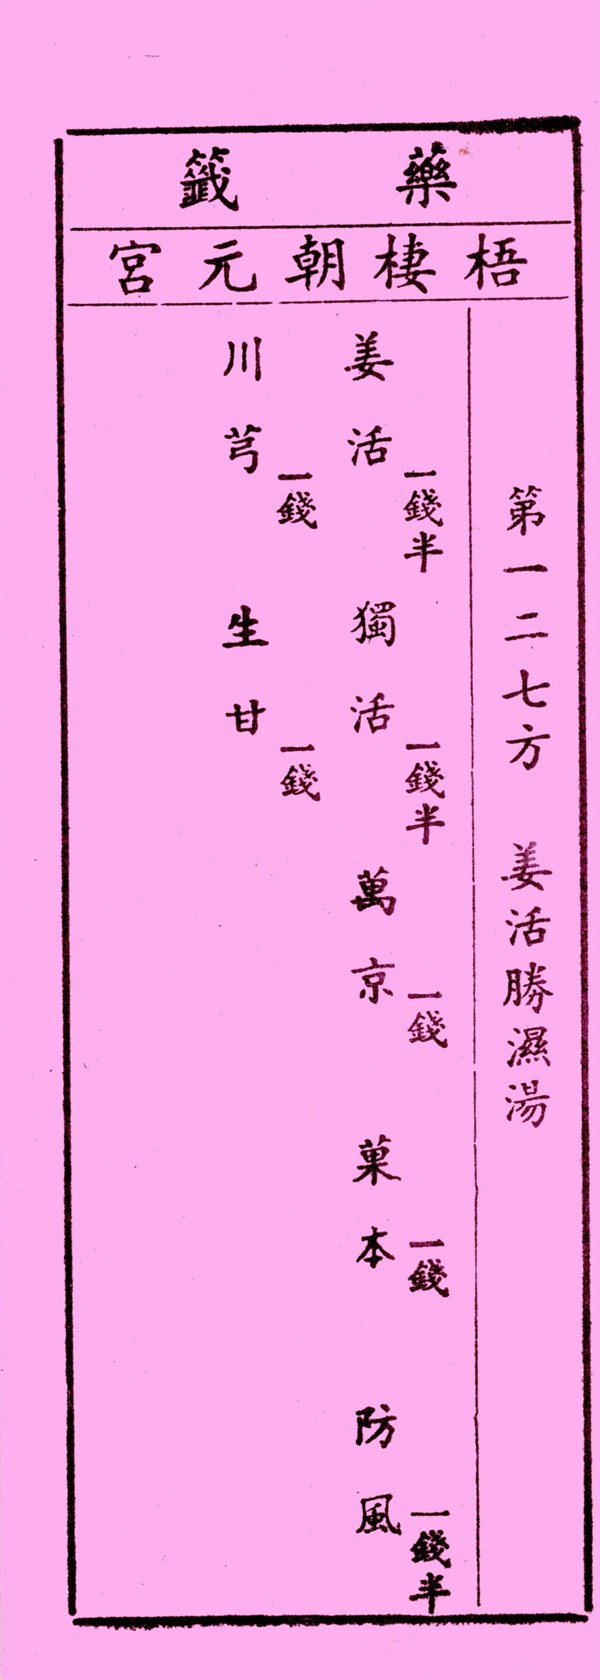 藥籤
梧棲朝元宮
第一二七方 姜活勝濕湯
姜活一錢半 獨活一錢半 萬京一錢 菓本一錢 防風一錢半
川芎一錢 生甘一錢